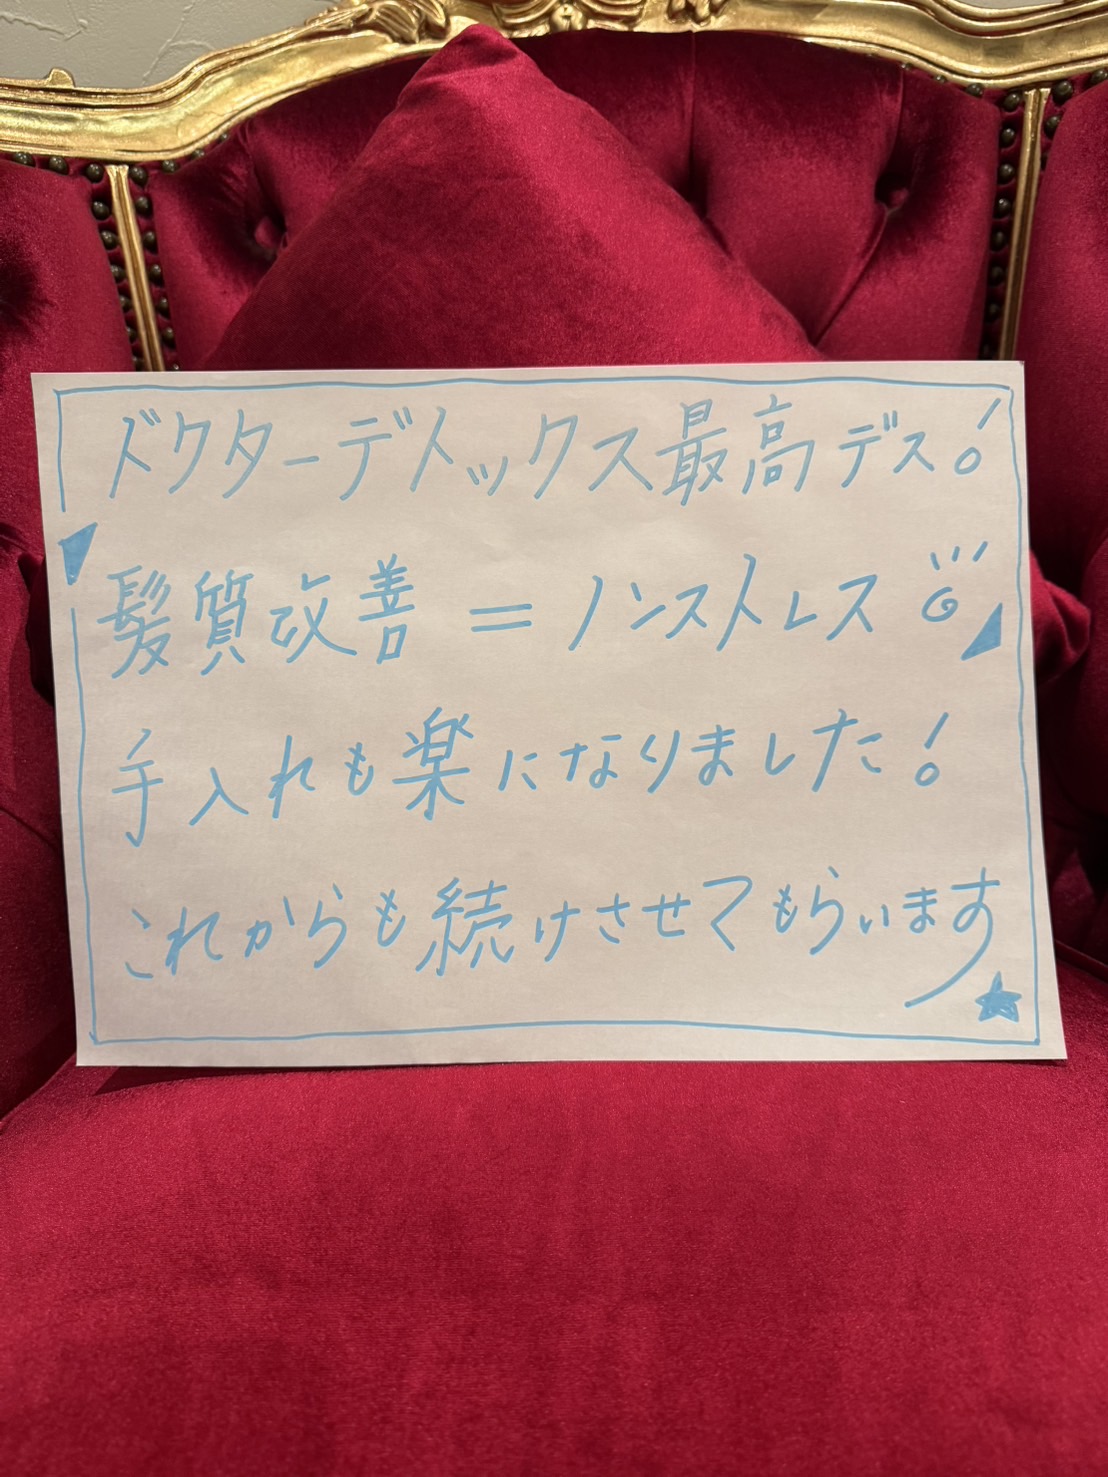 ドクターデトックス最高デス!
髪質改善=ノンストレス
手入れも楽になりました!
これからも続けさせてもらいます